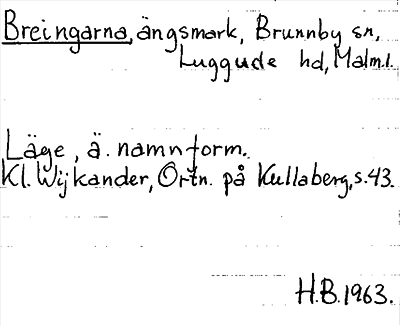 Breingarna, ängsmark, Brunnby sn,
Luggude hd, Malm.l.
Läge, ä. namnform.
Kl. Wijkander, Ortn. på Kullaberg, s. 43.
H.B. 1963.